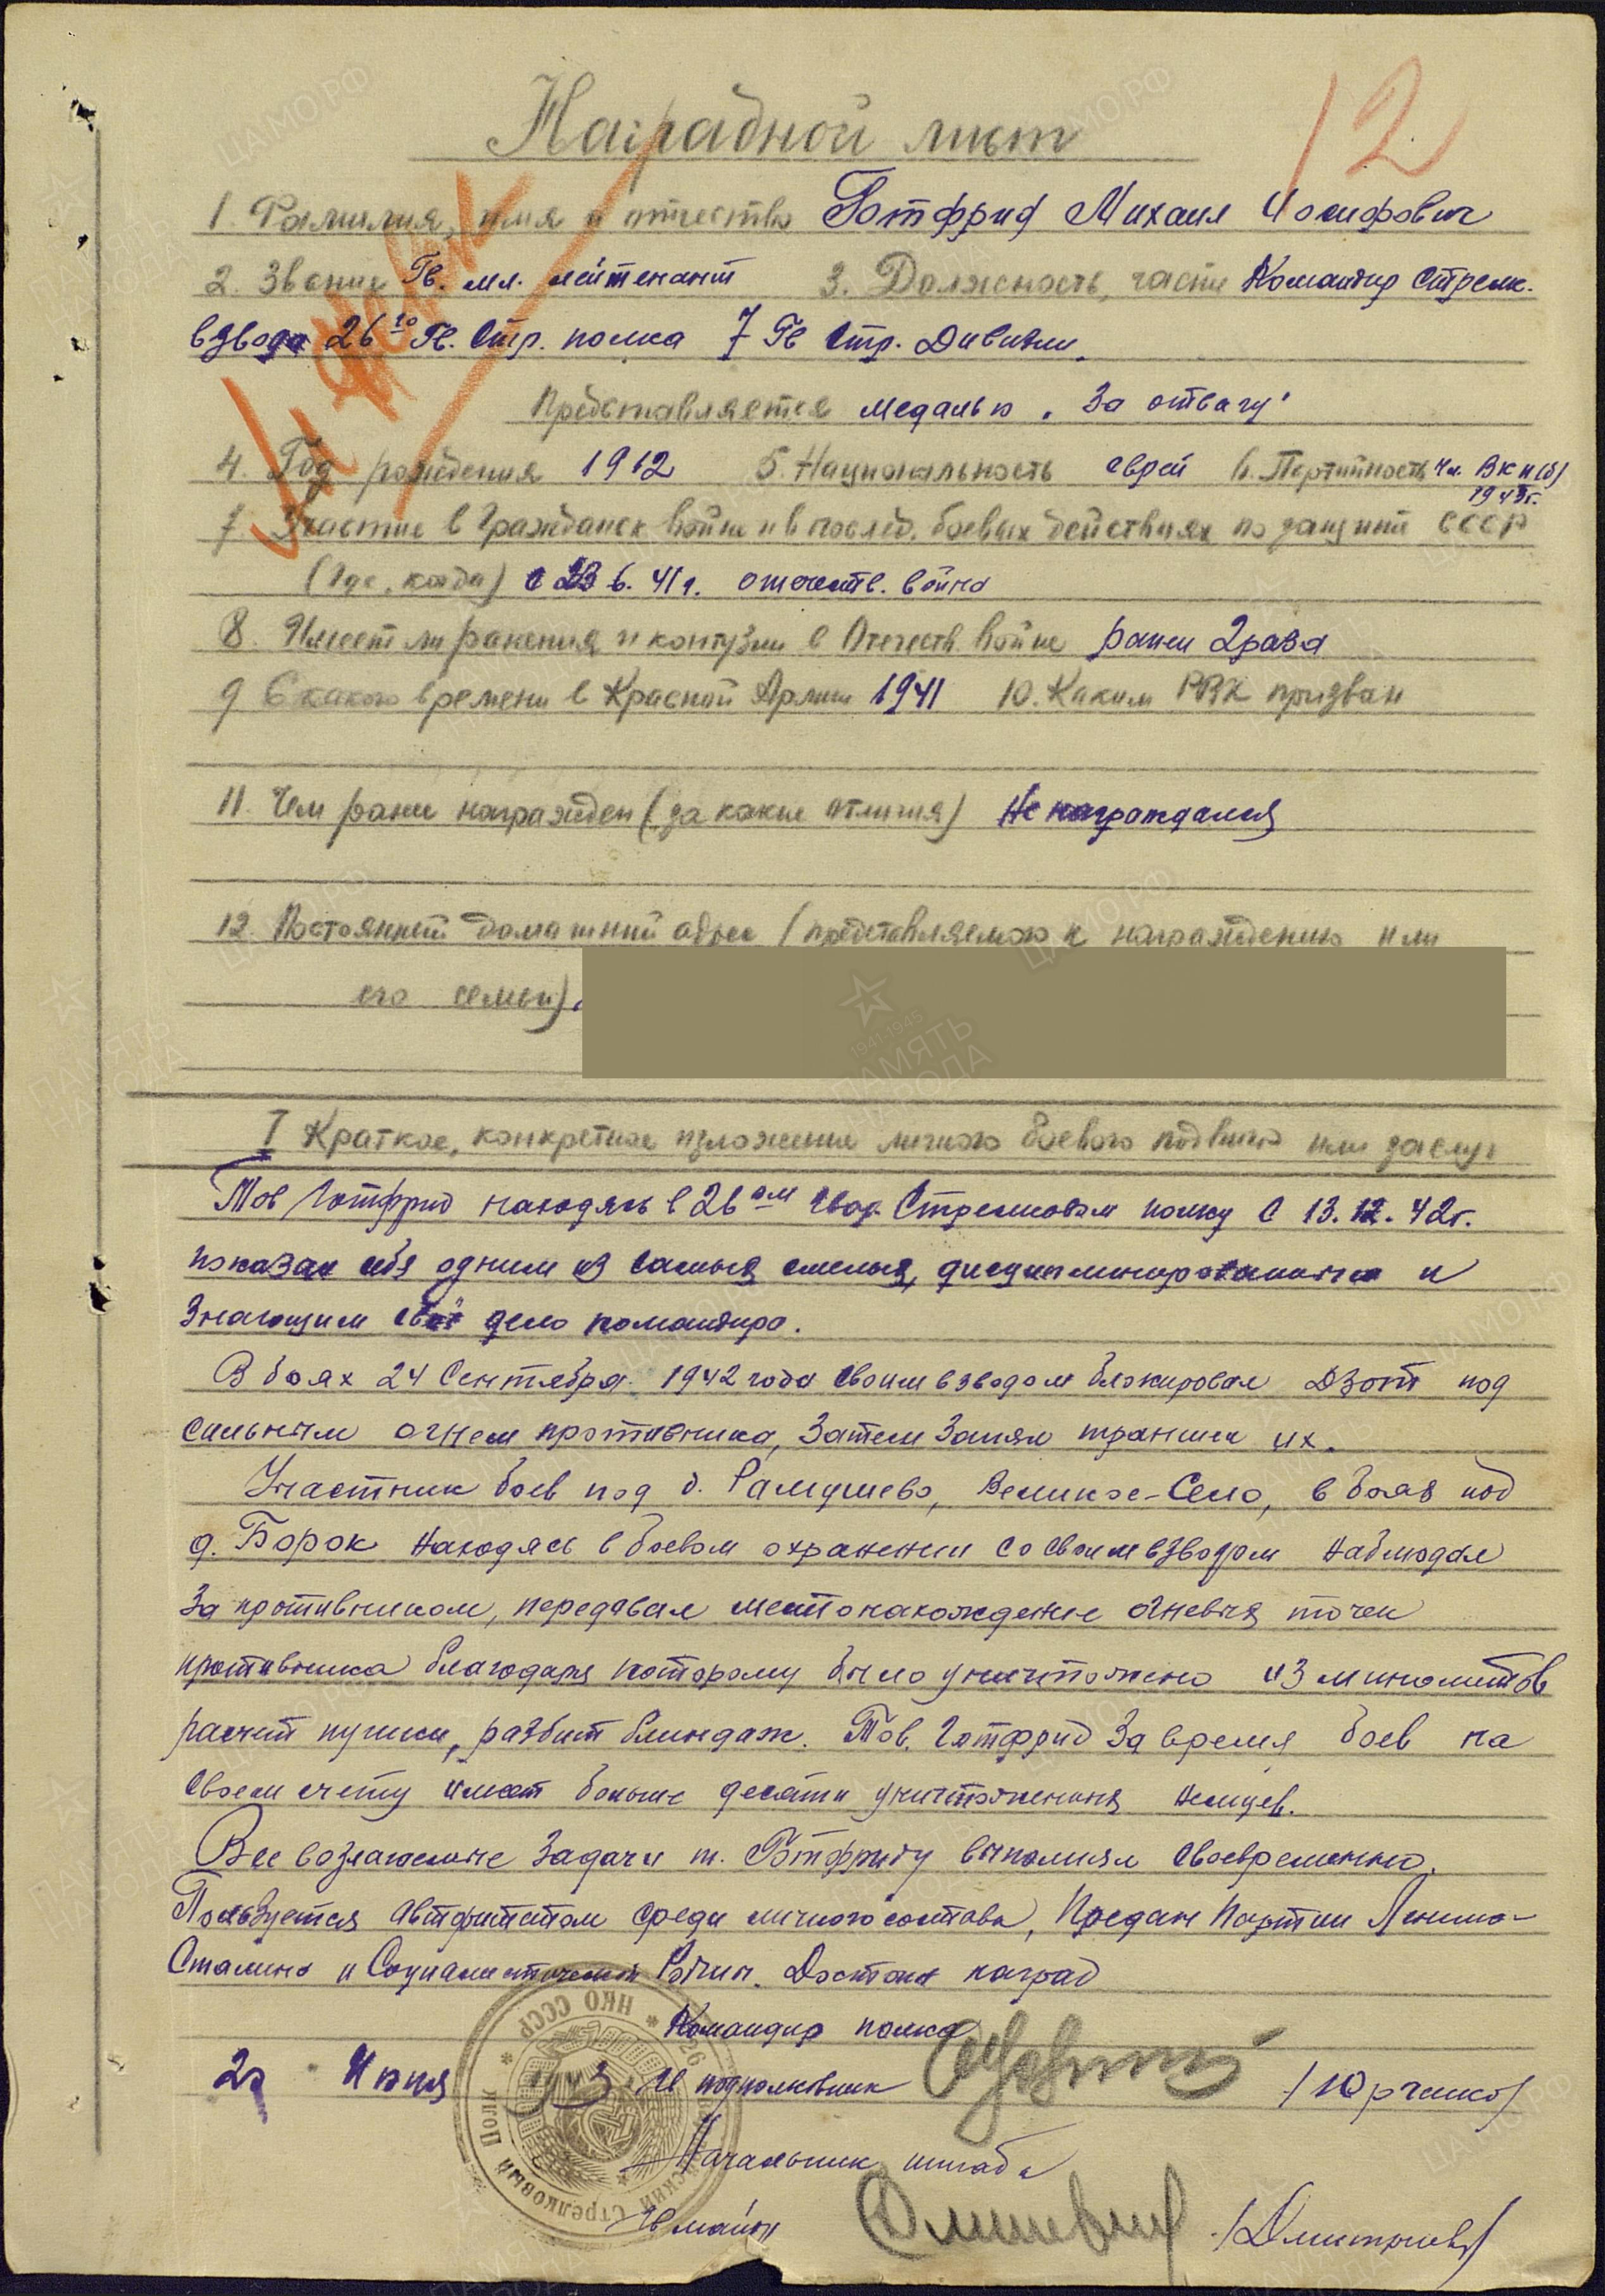 12
Наградной лист
1. Фамилия, имя и отчество Готфрид Михаил Иосифович
2. Звание Гв. мл. лейтенант 3. Должность, часть Командир Стрелк.
взвода 26го Гв. Стр. полка 7 Гв Стр. Дивизии.
Представляется медалью "За отвагу"
4. Год рождения 1912 5. Национальность еврей 6. Партийность чл. ВКП(б)
1943г.
7. Участие в Гражданск войне и в послед. боевых действиях по защите СССР
(где, когда) с 23.6.41г. отечеств. война
8. Имеет ли ранения и контузии в Отечеств. войне ранен 2 раза
9 С какого времени в Красной Армии 1941 10. Каким РВК призван
11. Чем ранее награжден (за какие отличия) Не награждался
12. Постоянный домашний адрес (представляемого к награждению или
его семьи)
I Краткое, конкретное изложение личного боевого подвига или заслуг
Тов Готфрид находясь в 26ом Гвар. Стрелковом полку с 13.12.42г.
показал себя одним из самых смелых, дисциплинированных и
знающим своё дело командира.
В боях 24 Сентября 1942 года своим взводом блокировал ДЗОТ под
сильным огнем противника, затем занял траншеи их.
Участник боев под д. Рамушево, Великое-Село, в боях под
д. Борок находясь в боевом охранении со своим взводом наблюдал
за противником, передавал местонахождение огневых точек
противника благодаря которому было уничтожено из минометов
расчет пушки, разбит блиндаж. Тов. Готфрид за время боев на
своем счету имеет больше десяти уничтоженных немцев.
Все возлагаемые задачи т. Готфриду выполнял своевременно.
Пользуется авторитетом среди личного состава, Предан Партии Ленина-
Сталина и Социалистической Родине. Достоин наград
Командир полка
Июня 1943 Гв подполковник /Юрченко/
Начальник штаба
Гв майор /Дмитриев/
НКО СССР * 26 Стрелковый Полк *